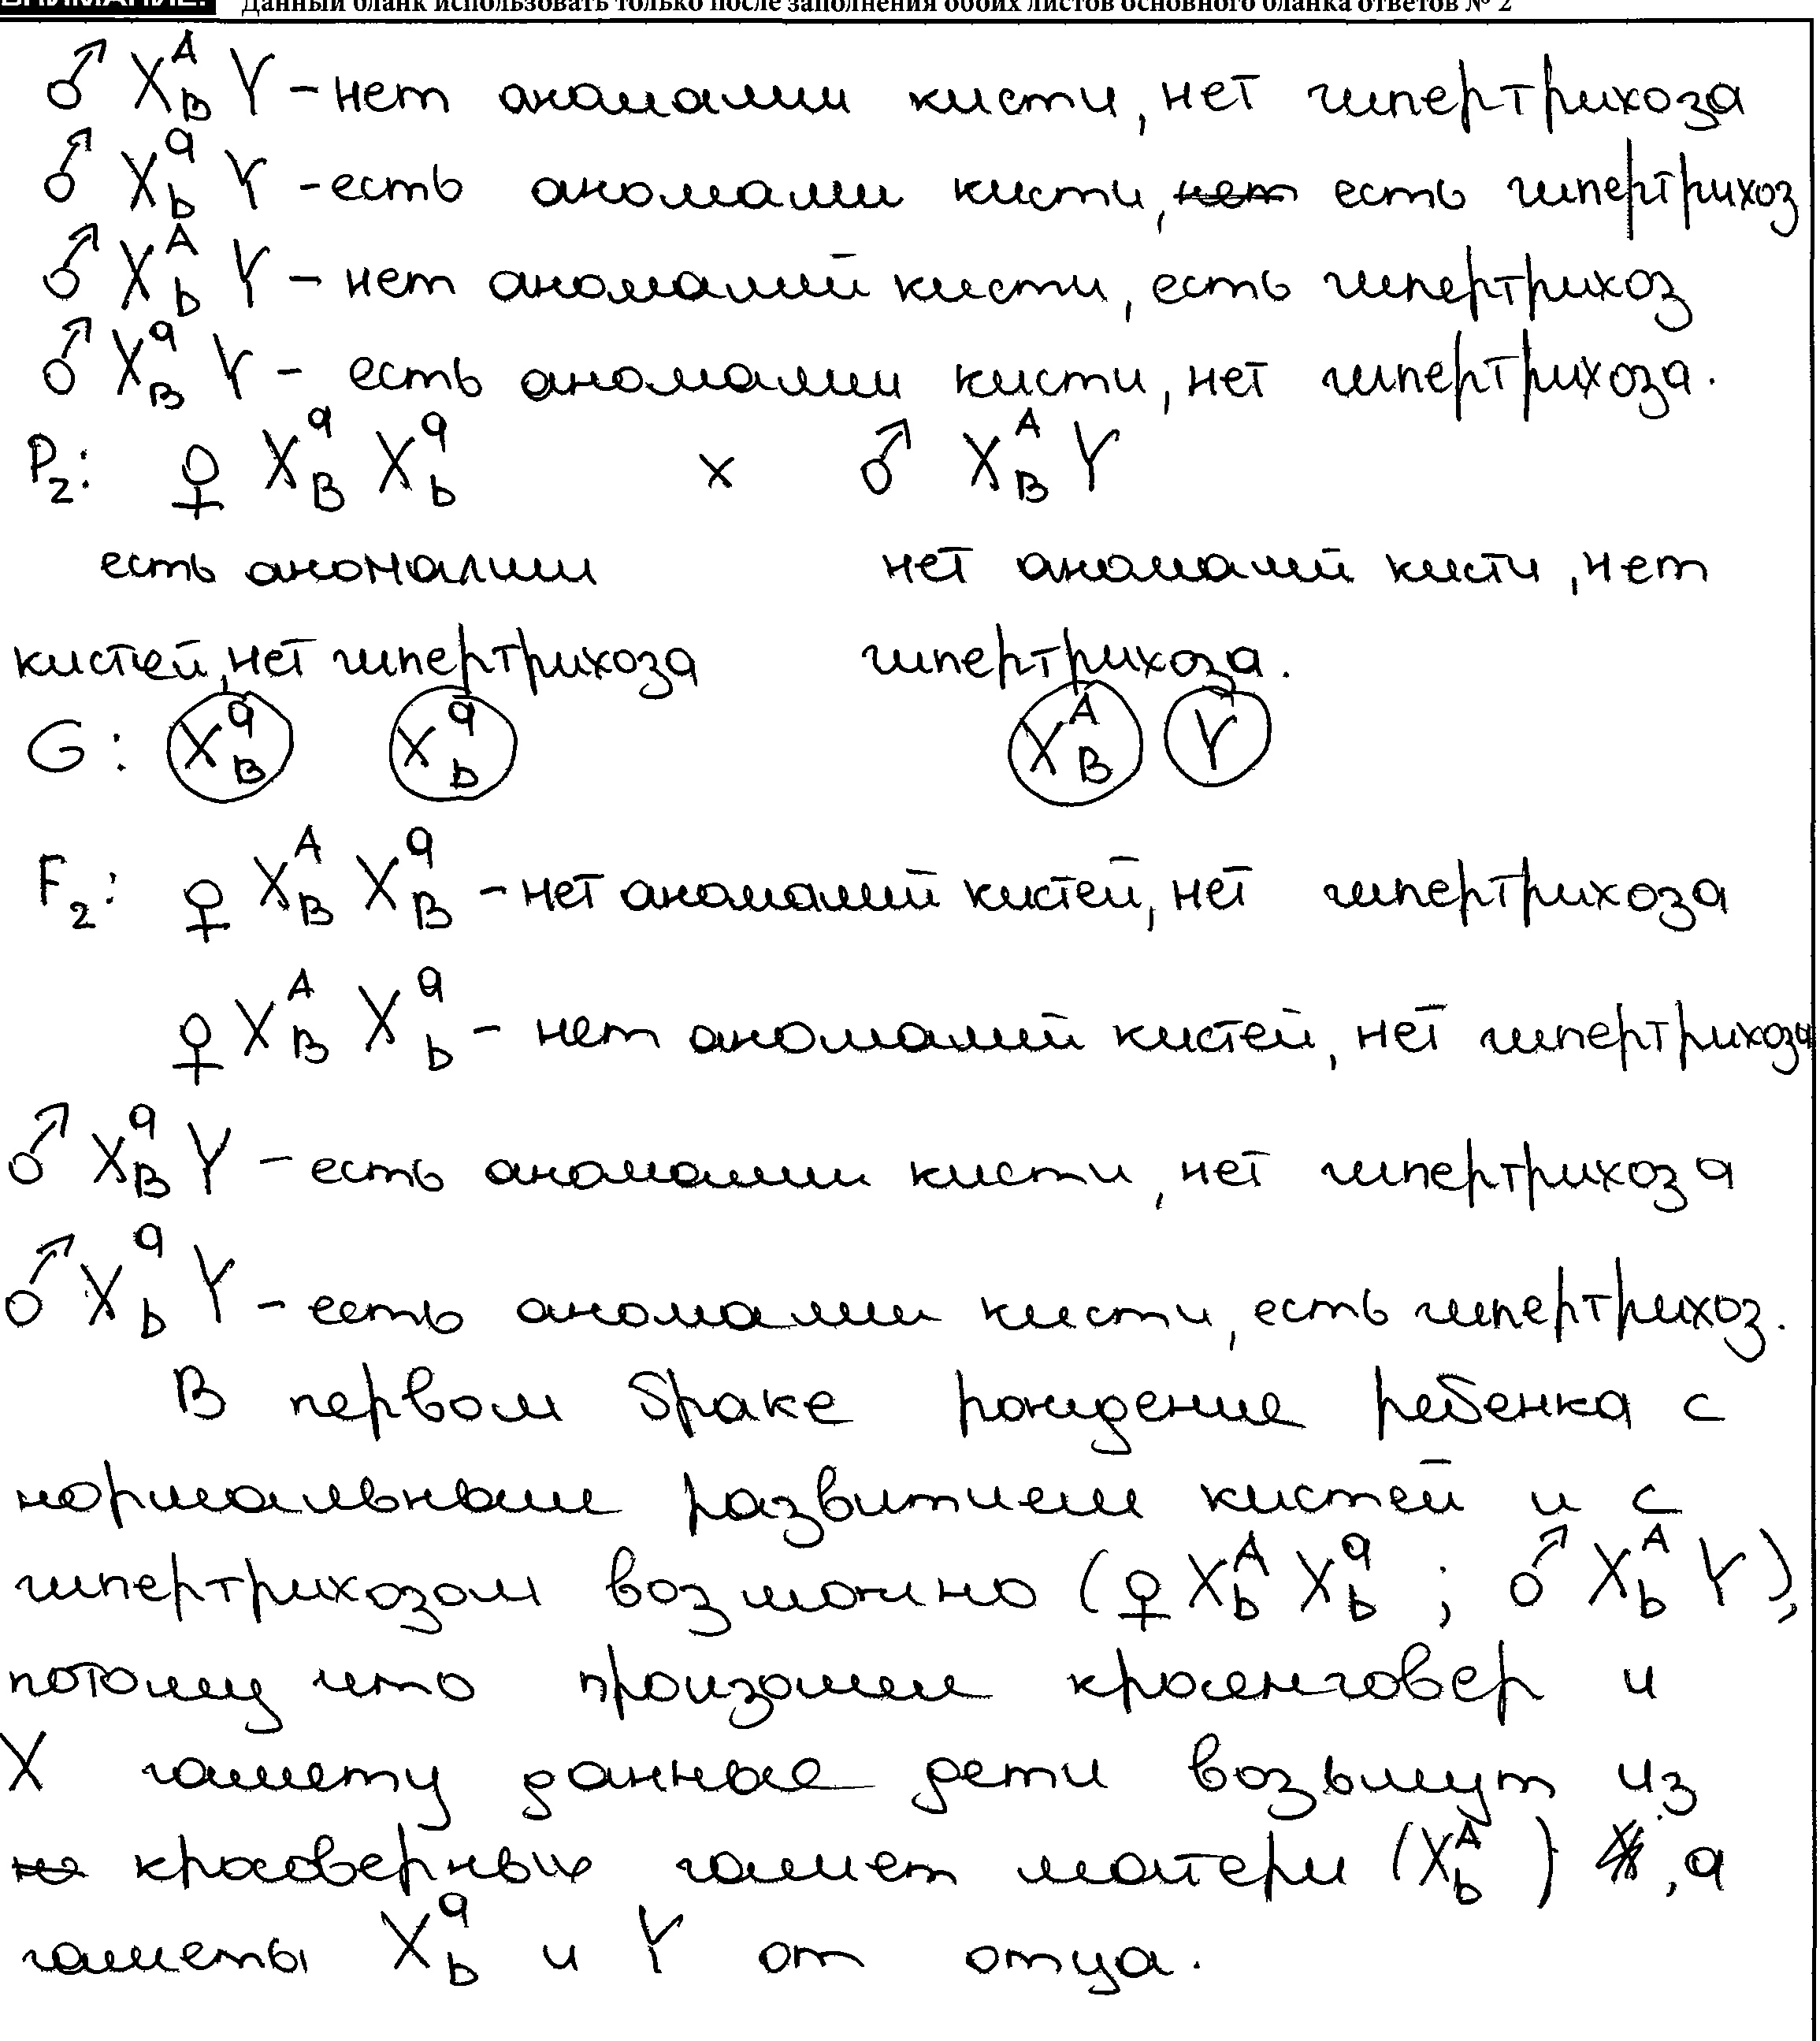 ВНИМАНИЕ! Данный бланк использовать только после заполнения обоих листов основного бланка ответов № 2
♂ X^A_B Y – нет аномалии кисти, нет гипертрихоза
♂ X^a_b Y – есть аномалии кисти, ~~нет~~ есть гипертрихоз
♂ X^A_b Y – нет аномалий кисти, есть гипертрихоз
♂ X^a_B Y – есть аномалии кисти, нет гипертрихоза.
P₂: ♀ X^a_B X^a_b x ♂ X^A_B Y
есть аномалии нет аномалий кисти, нет
кистей, нет гипертрихоза гипертрихоза.
G: X^a_B X^a_b X^A_B Y
F₂: ♀ X^A_B X^a_B – нет аномалий кистей, нет гипертрихоза
♀ X^A_B X^a_b – нет аномалий кистей, нет гипертрихоза
♂ X^a_B Y – есть аномалии кисти, нет гипертрихоза
♂ X^a_b Y – есть аномалии кисти, есть гипертрихоз.
В первом браке рождение ребенка с
нормальным развитием кистей и с
гипертрихозом возможно (♀ X^A_b X^a_b ; ♂ X^A_b Y),
потому что произошел кроссинговер и
X гамету данные дети возьмут из
~~не~~ кроссоверных гамет матери (X^A_b), а
гаметы X^a_b и Y от отца.